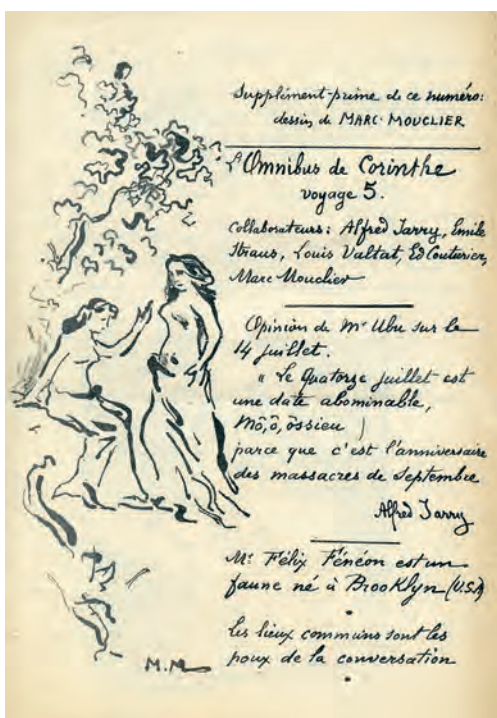 Supplément-prime de ce numéro:
dessin de MARC-MOUCLIER
L'Omnibus de Corinthe
voyage 5.
Collaborateurs: Alfred Jarry, Emile
Straus, Louis Valtat, Ed Couturier,
Marc Mouclier
Opinion de Mr Ubu sur le
14 juillet.
" Le Quatorze juillet est
une date abominable,
Mô, ô, ôssieu
parce que c'est l'anniversaire
des massacres de Septembre
Alfred Jarry
Mr Félix Fénéon est un
faune né à Brooklyn (U.S.A)
Les lieux communs sont les
poux de la conversation
M.M